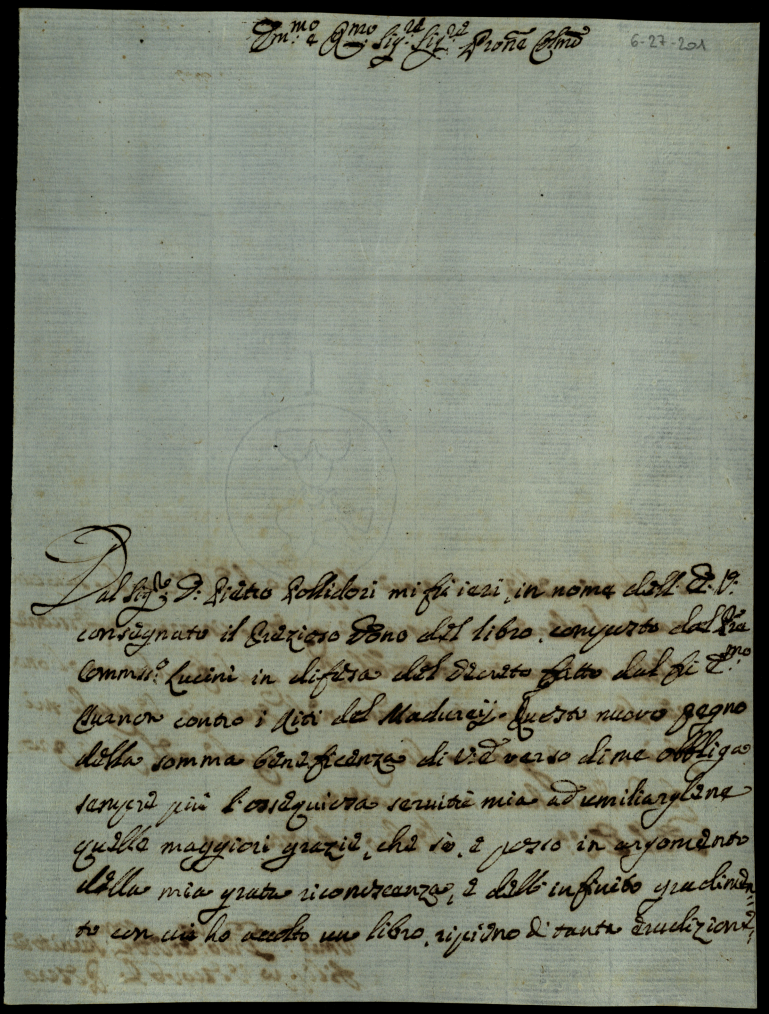 Em.mo e R.mo Sig.re Sig.re Prone Colmo
6-27-201
Dal Sig.re D: Pietro Pollidori mi fù ieri, in nome dell' E: V:
consegnato il Prezioso dono del libro, composto dal Pre
Commis.o Lucini in difesa del decreto fatto dal fù E.mo
contro i Riti del Madurey. Questo nuovo pegno
della somma beneficenza di V.E. verso di me obbliga
sempre più l'ossequiosa servitù mia ad umiliarglene
quelle maggiori grazie, che sò, e posso in argomento
della mia grata riconoscenza, e dell' infinito gradimen=
to con cui ho accolto un libro, ripieno di tanta erudizione,